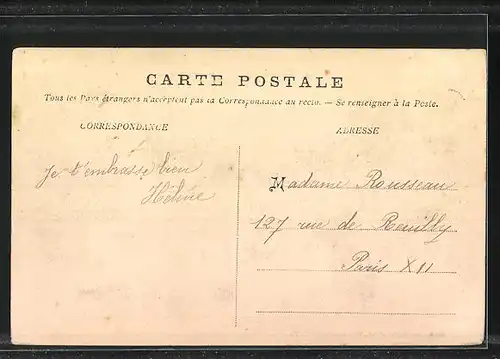 CARTE POSTALE
Tous les Pays étrangers n'acceptent pas la Correspondance au recto. — Se renseigner à la Poste.
CORRESPONDANCE
ADRESSE
Je t'embrasse bien
Hélène
Madame Rousseau
127 rue de Reuilly
Paris XII